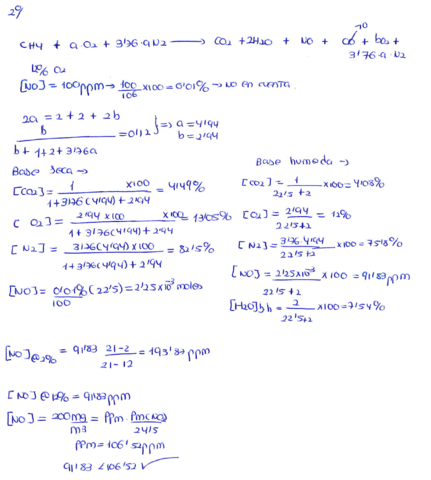 29
CH4 + a·O2 + 3'76·aN2 → CO2 + 2H2O + NO + CO + bO2 + 3'76·a·N2
12% O2
[NO] = 100ppm → 100/10^6 x100 = 0'01% → NO en cuenta.
2a = 2 + 2 + 2b
b/(b+1+2+3'76a) = 0'12 } => a = 4'94
b = 2'94
Base seca →
[CO2] = 1/(1+3'76(4'94)+2'94) x100 = 4'49%
[O2] = 2'94 x100/(1+3'76(4'94)+2'94) x100 = 13'05%
[N2] = 3'76(4'94)x100/(1+3'76(4'94)+2'94) = 82'5%
[NO] = 0'01%/100 (22'5) = 2'25x10^-3 moles
Base humeda →
[CO2] = 1/(22'5+2) x100 = 4'08%
[O2] = 2'94/(22'5+2) = 12%
[N2] = 3'76·4'94/(22'5+2) x100 = 75'8%
[NO] = 2'25x10^-3/(22'5+2) x100 = 91'83 ppm
[H2O]bh = 2/(22'5+2) x100 = 7'54%
[NO]@2% = 91'83 (21-2)/(21-12) = 193'87 ppm
[NO]@12% = 91'83ppm
[NO] = 200mg/m3 = ppm·PM(NO)/24'5
ppm = 106'52ppm
91'83 < 106'52 ✓